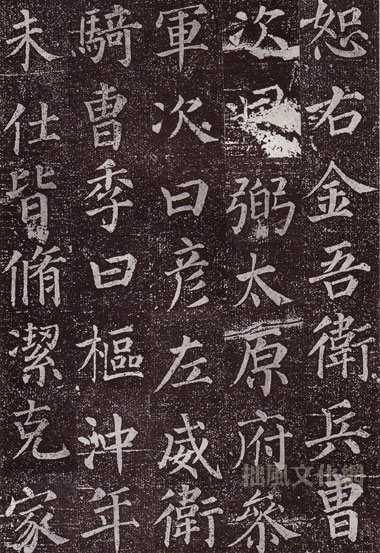 恕右金吾衛兵曹
次弼太原府參
軍次曰彥左威衛
騎曹季曰樞沖年
未仕皆脩潔克家
拙風文化網